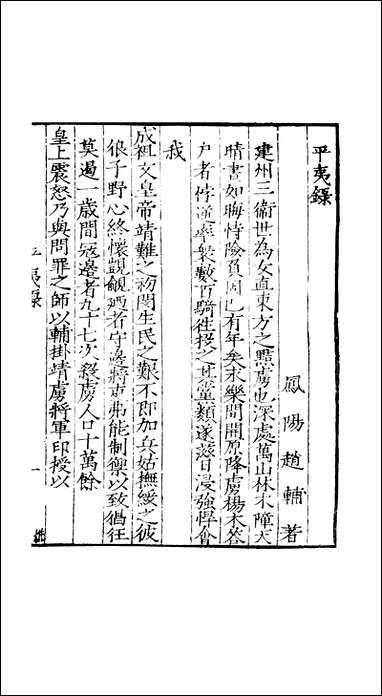 平夷錄
鳳陽趙輔著
建州三衛世為女直東方之黠虜也深處萬山林木障天
晴晝如晦恃險負固已有年矣永樂間開原降虜楊木答
户者悖逆率衆數百騎徃投之其黨類遂滋日浸強悍會
我
成祖文皇帝靖難之初閔生民之艱不即加兵姑撫綏之彼
狼子野心終懷覬覦廼者守邊將弗能制禦以致猖狂
莫過一歲間冦邊者九十七次殺虜人口十萬餘
皇上震怒乃興問罪之師以輔掛靖虜將軍印授以
平夷錄
一